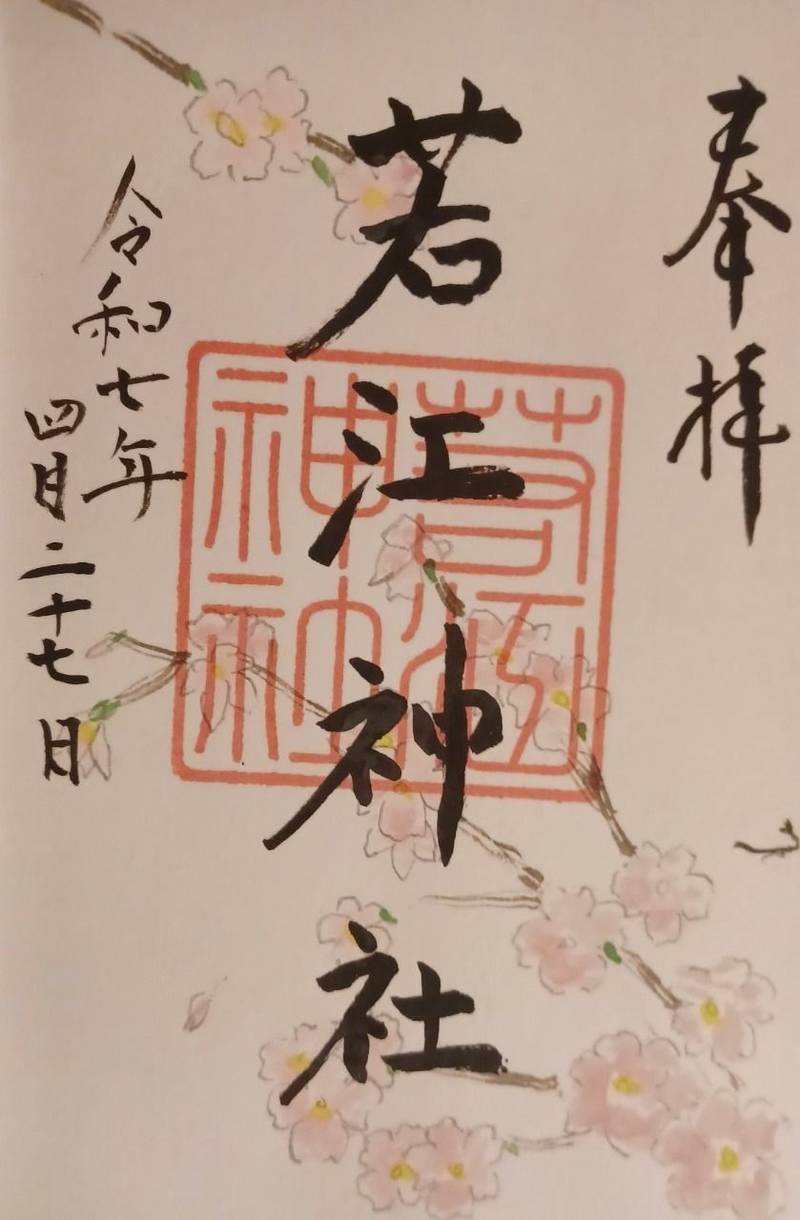 奉拝
若江神社
若江
神社
令和七年
四月二十七日